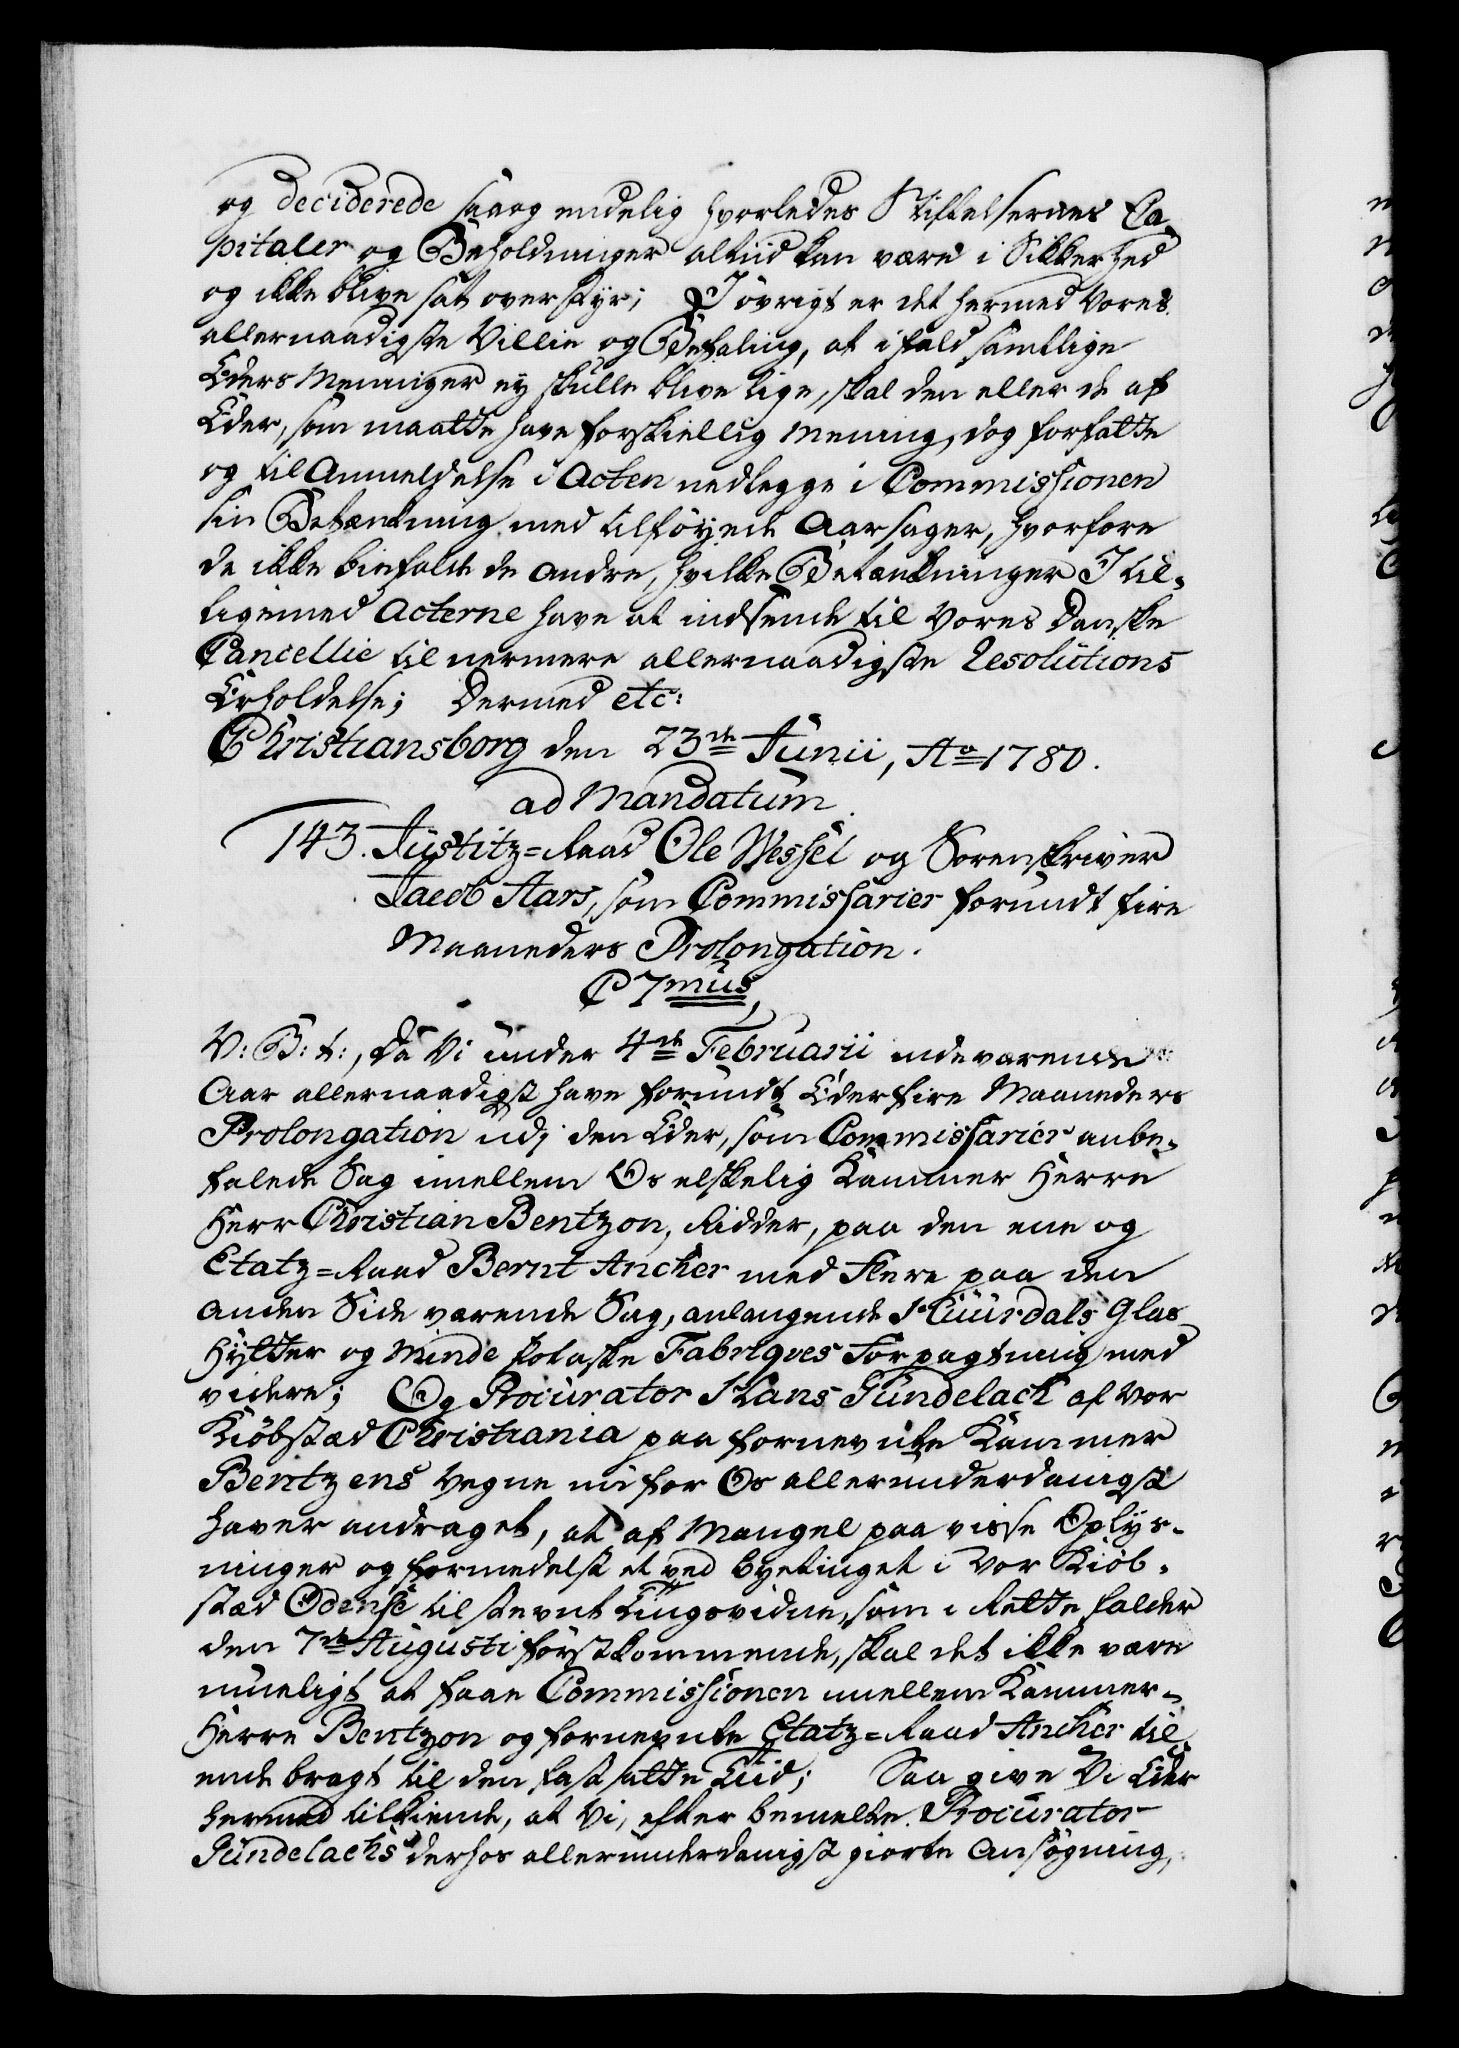 og deciderede saavog endelig hvorledes Stiftelsernes Ca-
pitaler og Beholdninger altiid kan være i Sikkerhed
og ikke blive sat over styr; I øvrigt er det hermed Vores
allernaadigste Villie og Befaling, at ifald samtlige
Eders Meninger ey skulle blive lige, skal den eller de af
Eder, som maatte have forskiellig Mening, dog forfatte
og til Anmeldelse i Acten nedlegge i Commissionen
sin Betænkning med tilføyede Aarsager, hvorfore
de ikke biefaldt de Andre, hvilke Betænkninger I til-
ligemed Acterne have at indsende til Vores Danske
Cancellie til nermere allernaadigste Resolutions
Erholdelse; Dermed etc:
Christiansborg den 23de Junii, Ao 1780.
ad Mandatum.
143. Justitz=Raad Ole Wessel og Sorenskriver
Jacob Aars, som Commissarier forundt fire
Maaneders Prolongation.
C 7mus,
V: G: t:, Da Vi under 4de Februarii indeværende
Aar allernaadigst have forundt Eder fire Maaneders
Prolongation udj den Eder, som Commissarier anbe-
falede Sag imellem Os elskelig Kammer Herre
Herr Christian Bentzon, Ridder, paa den ene og
Etatz=Raad Bernt Ancher med Flere paa den
Anden Side værende Sag, anlangende Huurdals Glas
Hytter og Minde Potaske Fabriqves Forpagtning med
videre; Og Procurator Hans Gundelach af Vor
Kiøbstæd Christiania paa fornevnte Kammer
Bentzens Vegne nu for Os allerunderdanigst
haver andraget, at af Mangel paa visse Oplys-
ninger og formedelst et ved Byetinget i Vor Kiøb-
stæd Odense til stevnt Tingsvidne, som i Rette falder
den 7de Augusti førstkommende, skal det ikke være
mueligt at faae Commissionen imellem Kammer-
Herre Bentzon og fornevnte Etatz=Raad Ancher til
ende bragt til den fastsatte Tiid; Saa give Vi Eder
hermed tilkiende, at Vi, efter bemelte Procurator
Gundelachs derhos allerunderdanigst giorte Ansøgning,